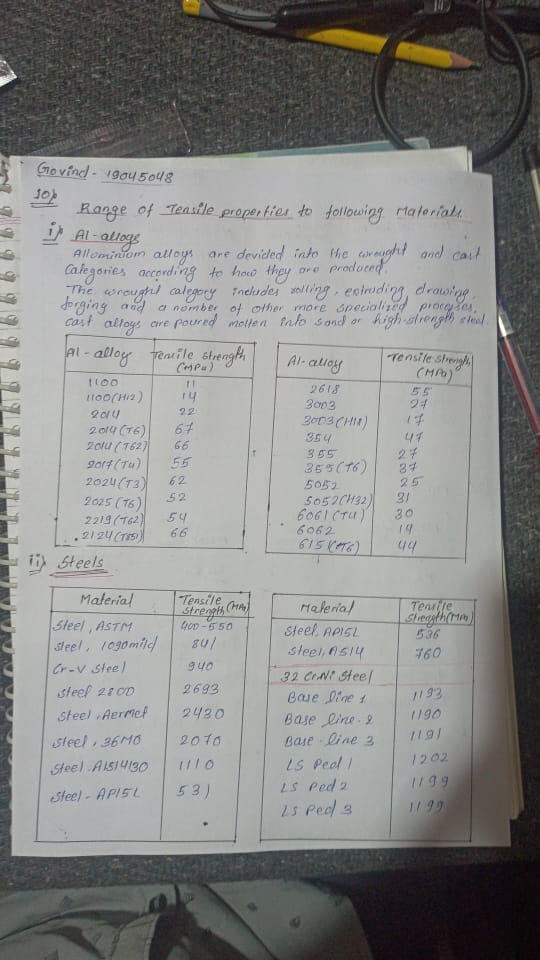 Govind - 19045048
10)
Range of Tensile properties to following Materials
i) Al-alloys
Alluminium alloys are devided into the wrought and cast
Categories according to how they are produced.
The wrought category includes rolling, extruding drawing,
forging and a nomber of other more specialized processes,
cast alloys are poured molten into sand or high-strength steel.
Al-alloy Tensile strength (MPa)
1100 11
1100(H12) 14
2014 22
2014 (T6) 67
2014 (T62) 66
2017 (T4) 55
2024 (T3) 62
2025 (T6) 52
2219 (T62) 54
2124 (T851) 66
Al-alloy Tensile strength (MPa)
2618 55
3003 27
3003 (H18) 17
354 47
355 27
355 (T6) 37
5052 25
5052 (H32) 31
6061 (T4) 30
6062 14
6151 (T6) 44
ii) Steels
Material Tensile Strength (MPa)
Steel, ASTM 400-550
Steel, 1090 mild 841
Cr-V Steel 940
Steel 2800 2693
Steel, Aermet 2430
Steel, 36M0 2070
Steel. AISI4130 1110
Steel - API5L 531
Material Tensile Strength (MPa)
Steel, API5L 536
Steel, A514 760
32 CrNi Steel
Base line 1 1193
Base line - 2 1190
Base - line 3 1191
LS Ped 1 1202
LS Ped 2 1199
LS Ped 3 1199